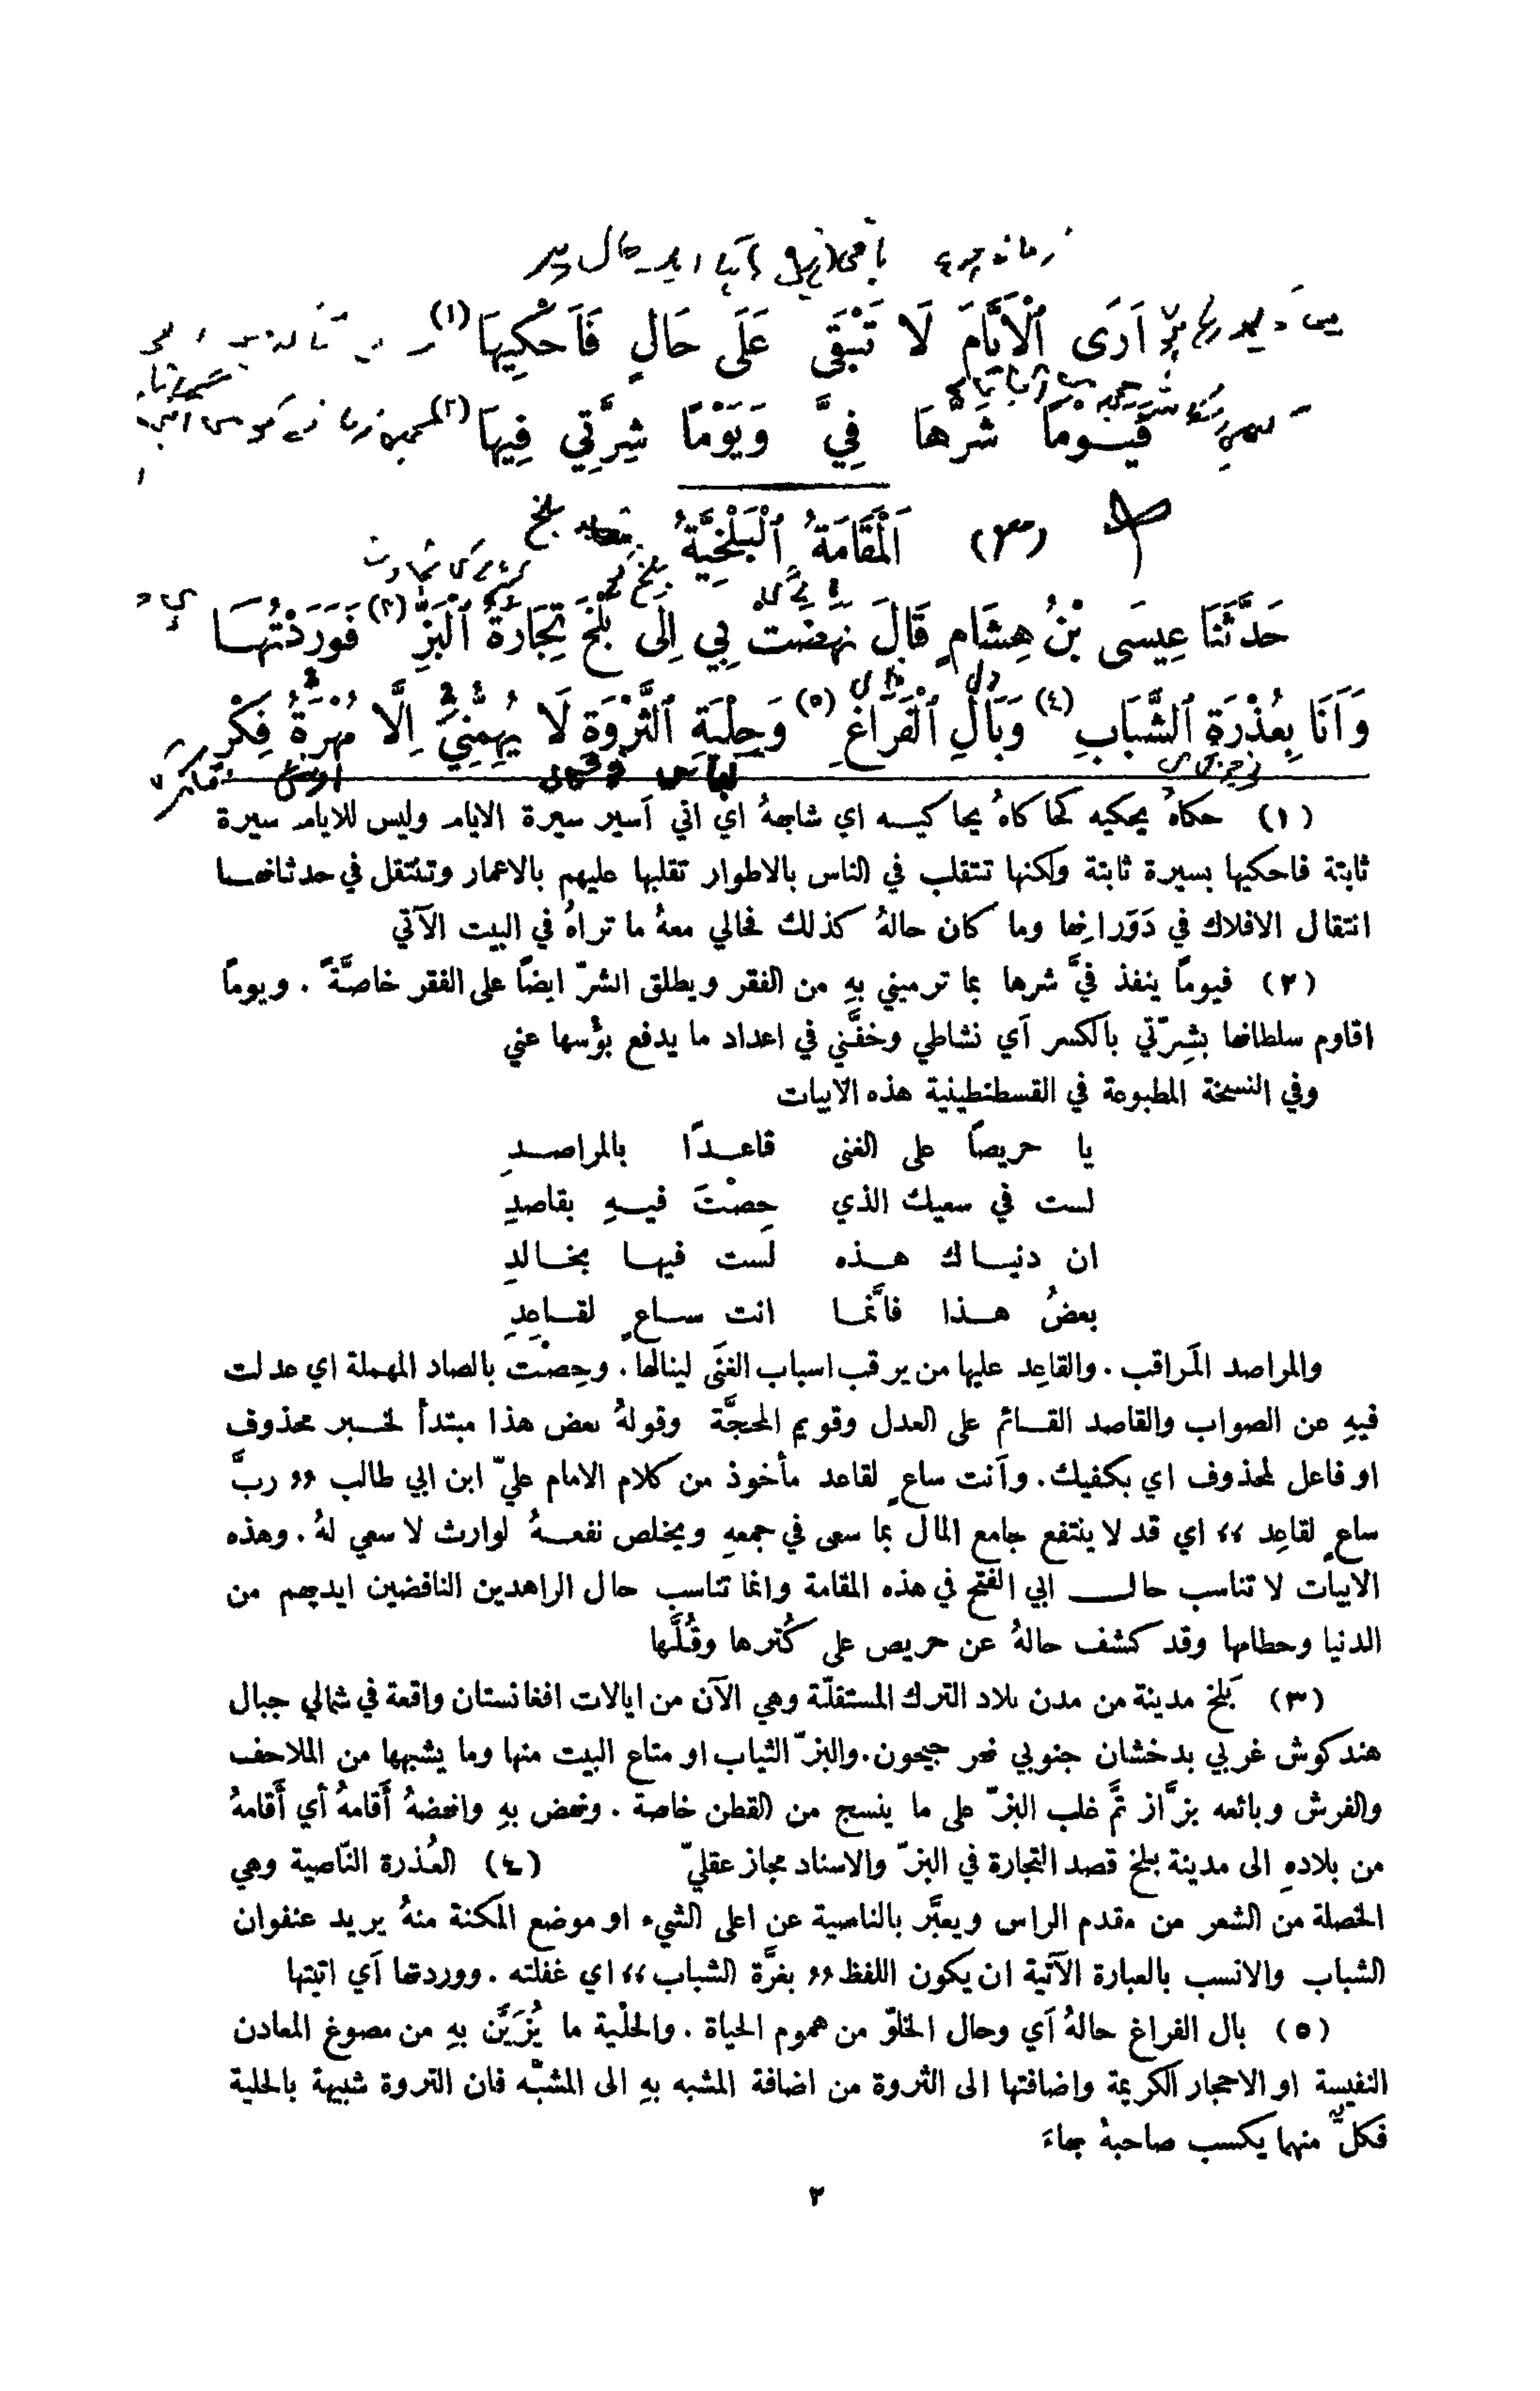 أَرَى ٱلْأَيَّامَ لَا تَبْقَى عَلَى حَالٍ فَأَحْكِيهَا (١)
فَيَوْمًا شَرُّهَا فِيَّ وَيَوْمًا شِرَّتِي فِيهَا (٢)
(٣) اَلْمَقَامَةُ ٱلْبَلْخِيَّةُ
حَدَّثَنَا عِيسَى بْنُ هِشَامٍ قَالَ نَهَضَتْ بِي إِلَى بَلْخَ تِجَارَةُ ٱلْبَزِّ (٣) فَوَرَدْتُهَا
وَأَنَا بِعُذْرَةِ ٱلشَّبَابِ (٤) وَبَالِ ٱلْفَرَاغِ (٥) وَحِلْيَةِ ٱلثَّرْوَةِ لَا يُهِمُّنِي إِلَّا مُهْرَةُ فِكْرٍ
(١) حكاهُ يحكيه كحاكاهُ يحاكيه اي شابههُ اي اني أسير سيرة الايام وليس للايام سيرة
ثابتة فاحكيها بسيرة ثابتة ولكنها تتقلب في الناس بالاطوار تقلبها عليهم بالاعمار وتنتقل في حدثانها
انتقال الافلاك في دَوَرانها وما كان حالهُ كذلك فحالي معهُ ما تراهُ في البيت الآتي
(٢) فيومًا ينفذ فيَّ شرها بما ترميني بهِ من الفقر ويطلق الشرّ ايضًا على الفقر خاصَّةً . ويومًا
اقاوم سلطانها بشِرّتي بالكسر أي نشاطي وخفَّتي في اعداد ما يدفع بؤسها عني
وفي النسخة المطبوعة في القسطنطينية هذه الابيات
يا حريصًا على الغنى قاعدًا بالمراصدِ
لست في سعيك الذي حِصْتَ فيهِ بقاصدِ
ان دنياك هذه لَست فيها بخالدِ
بعضُ هذا فانَّما انت ساعٍ لقاعِدِ
والمراصد المَراقب . والقاعِد عليها من يرقب اسباب الغنَى لينالها . وحِصْت بالصاد المهملة اي عدلت
فيهِ عن الصواب والقاصد القائم على العدل وقويم المحجَّة وقولهُ بعض هذا مبتدأ لخبر محذوف
او فاعل لمحذوف اي يكفيك . وأنت ساعٍ لقاعد مأخوذ من كلام الامام عليّ ابن ابي طالب ,, ربَّ
ساعٍ لقاعِد ،، اي قد لا ينتفع جامع المال بما سعى في جمعهِ ويخلص نفعهُ لوارث لا سعي لهُ . وهذه
الابيات لا تناسب حال ابي الفتح في هذه المقامة وانما تناسب حال الزاهدين النافضين ايديهم من
الدنيا وحطامها وقد كشف حالهُ عن حريص على كُثرها وقُلَّها
(٣) بَلخ مدينة من مدن بلاد الترك المستقلّة وهي الآن من ايالات افغانستان واقعة في شمالي جبال
هندكوش غربي بدخشان جنوبي نهر جيحون . والبزّ الثياب او متاع البيت منها وما يشبهها من الملاحف
والفرش وبائعه بزَّاز ثمَّ غلب البزّ على ما ينسج من القطن خاصة . ونهض بهِ وانهضهُ أَقامهُ أي أَقامهُ
من بلادهِ الى مدينة بلخ قصد التجارة في البزّ والاسناد مجاز عقليّ (٤) العُذرة النَّاصية وهي
الخصلة من الشعر من مقدم الراس ويعبَّر بالناصية عن اعلى الشيء او موضع المكنة منهُ يريد عنفوان
الشباب والانسب بالعبارة الآتية ان يكون اللفظ ,, بغرَّة الشباب ،، اي غفلته . ووردتها أي اتيتها
(٥) بال الفراغ حالهُ أي وحال الخلوّ من هموم الحياة . والحلْية ما يُزَيَّن بهِ من مصوغ المعادن
النفيسة او الاحجار الكريمة واضافتها الى الثروة من اضافة المشبه بهِ الى المشبَّه فان الثروة شبيهة بالحلية
فكلٌّ منهما يكسب صاحبهُ بهاءَ
٣